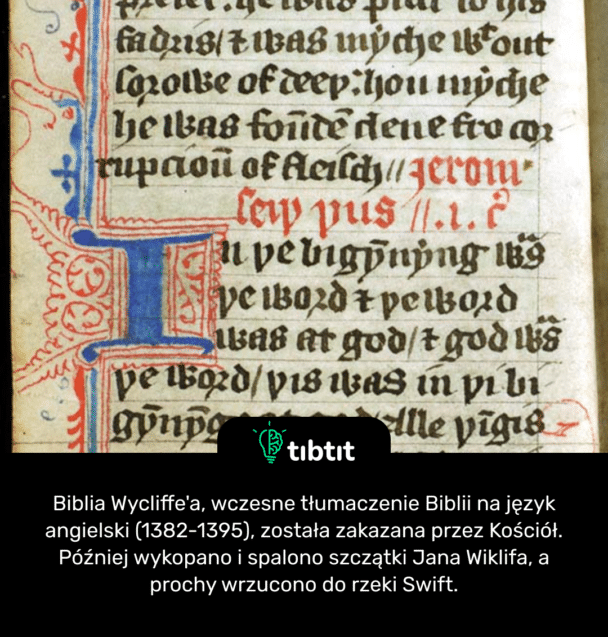 he was put to his
fadris/ ⁊ was myche wᵗout
sorowe of deeþ: hou myche
he was foūdē clene fro cor
rupcioū of fleisch// Jerom
seiþ þus //.1. cͦ
In þe bigȳnyng wͣs
þe word ⁊ þe word
was at god/ ⁊ god wͣs
þe word/ þis was in þi bi
gȳnȳg alle þīgis
tıbtıt
Biblia Wycliffe'a, wczesne tłumaczenie Biblii na język
angielski (1382-1395), została zakazana przez Kościół.
Później wykopano i spalono szczątki Jana Wiklifa, a
prochy wrzucono do rzeki Swift.